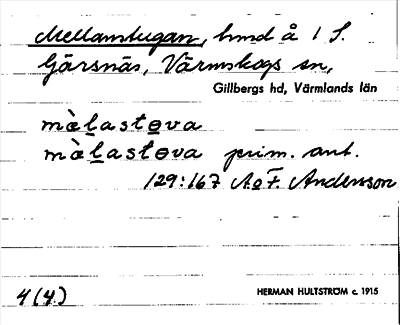 Mellanstugan, hmd å 1 S.
Gärsnäs, Värmskogs sn,
Gillbergs hd, Värmlands län
mὰl̲astɵva
mὰl̲astɵva prim. ant.
129:167 A o F. Andersson
4(4.)
HERMAN HULTSTRÖM c. 1915